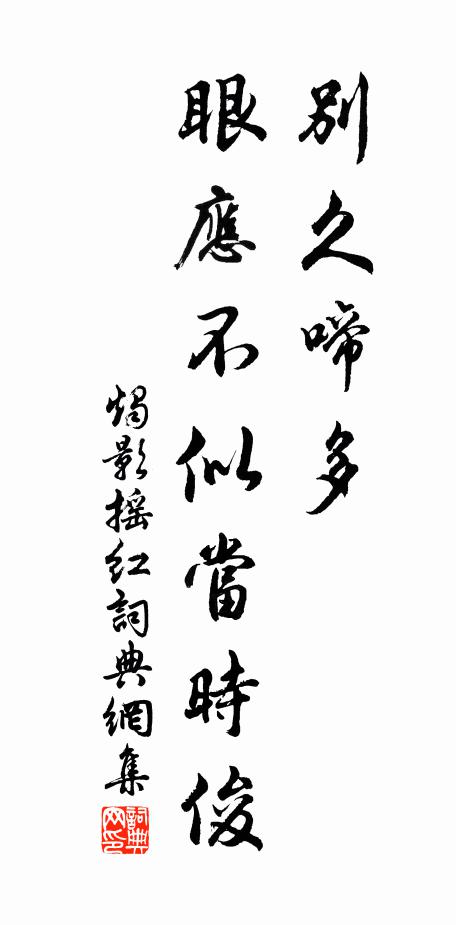 別久啼多
眼應不似當時俊
燭影搖紅詞典網集
詞典
网印